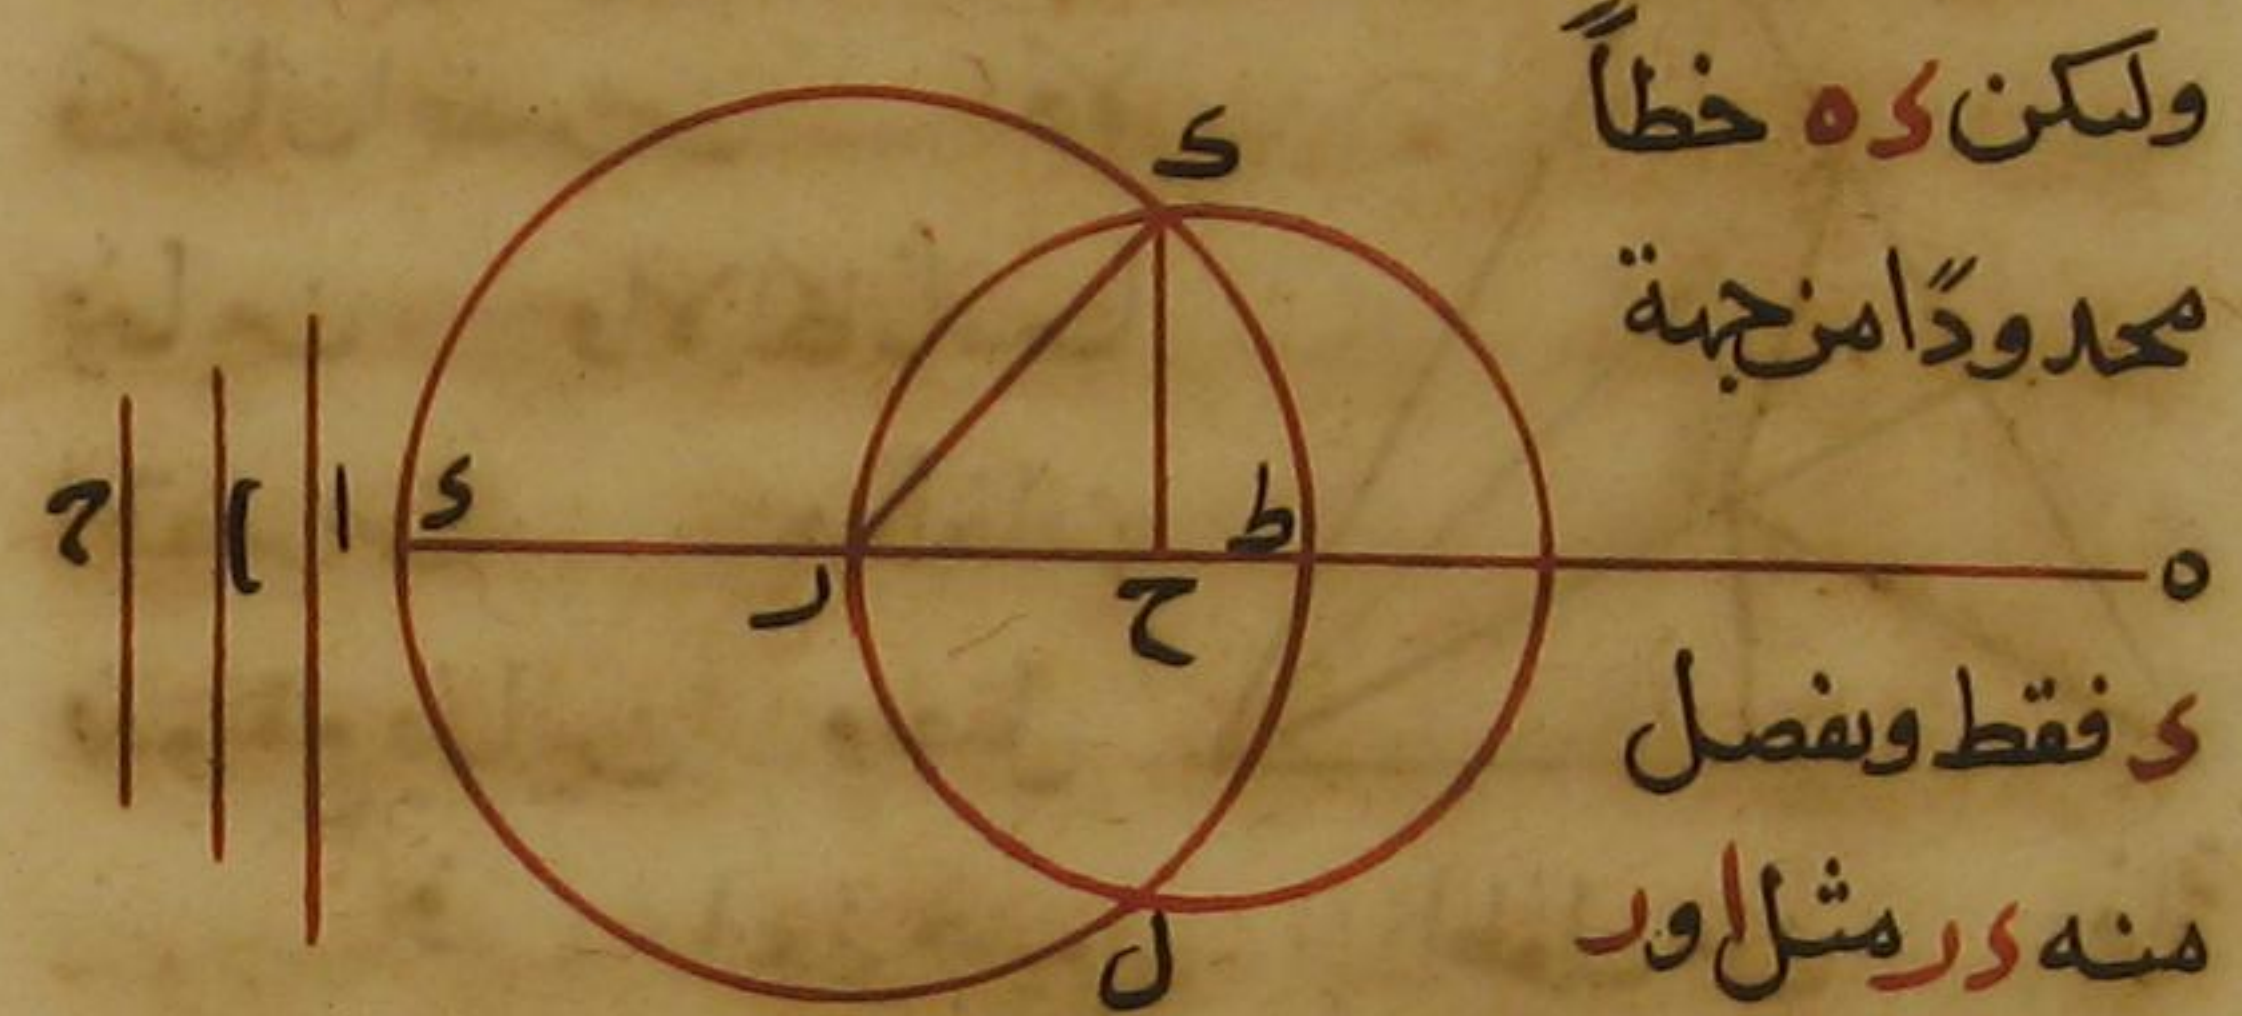 ولىكن ده خطاً
محدودًا من جهة
د فقط وىفصل
منه در مثل ا ور
ك
ا
ب
ج
د
ر
ح
ط
ه
ل